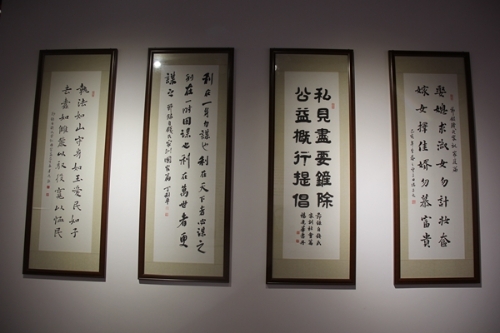 娶媳求淑女勿計妝奩
嫁女擇佳婿勿慕富貴
私見盡要鏟除
公益概行提倡
利在一身勿謀也利在天下者必謀之
利在一時固謀之利在萬世者更
謀之
執法如山守身如玉愛民如子
去蠹如讎嚴以馭役寬以恤民